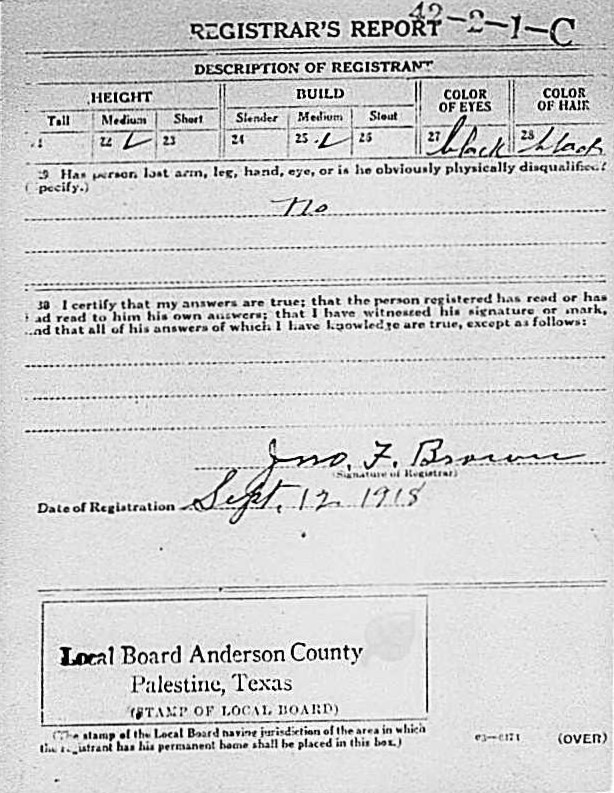 REGISTRAR'S REPORT 42-2-1-C
DESCRIPTION OF REGISTRANT
HEIGHT BUILD COLOR OF EYES COLOR OF HAIR
Tall Medium Short Slender Medium Stout
22 ✓ 23 24 25 ✓ 26 27 black 28 black
29 Has person lost arm, leg, hand, eye, or is he obviously physically disqualified?
(pecify.)
no
30 I certify that my answers are true; that the person registered has read or has
ad read to him his own answers; that I have witnessed his signature or mark,
nd that all of his answers of which I have knowledge are true, except as follows:
Jno. F. Brown
(Signature of Registrar)
Date of Registration Sept. 12 1918
Local Board Anderson County
Palestine, Texas
(STAMP OF LOCAL BOARD)
(The stamp of the Local Board having jurisdiction of the area in which
the registrant has his permanent home shall be placed in this box.)
(OVER)